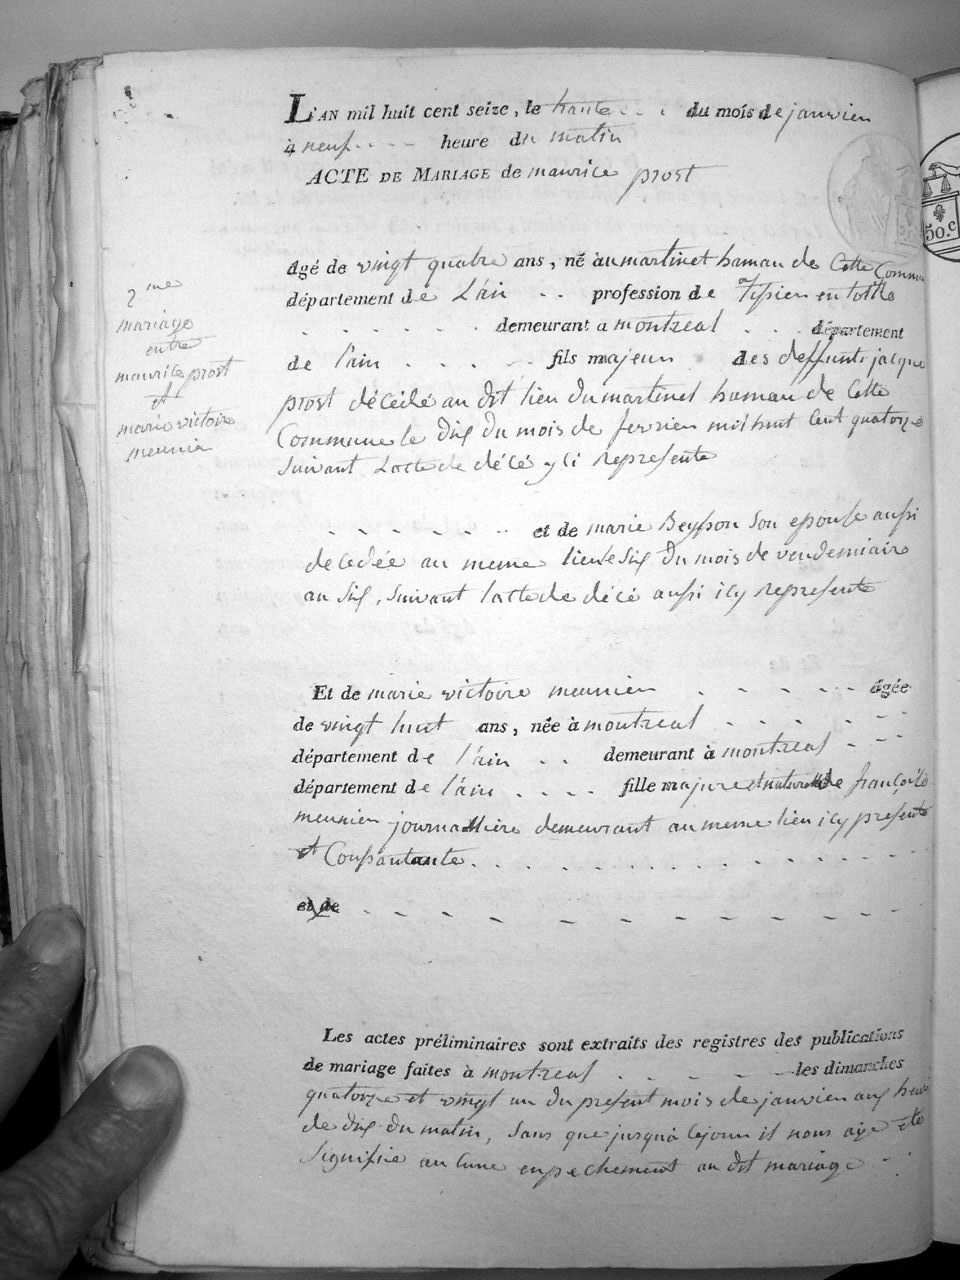 L'AN mil huit cent seize, le trante du mois de janvier
à neuf heure du matin
ACTE DE MARIAGE de maurice prost
agé de vingt quatre ans, né au martinet hamau de Cette Commune
département de L'ain profession de Tissier en toille
demeurant a montreal département
de l'ain fils majeur des deffunts jacque
prost décédé au dit lieu du martinet hamau de Cette
Commune le dix du mois de fevrier mil huit Cent quatorze
suivant Lacte de décé y ci represente
et de marie Beysson son epouse aussi
decedée au meme lieu le six du mois de vendemiaire
an six, suivant lacte de décé aussi icy represente
2me
mariage
entre
maurice prost
et
marie victoire
meunier
Et de marie victoire meunier agée
de vingt huit ans, née à montreal
département de l'ain demeurant à montreal
département de l'ain fille majure et naturelle de françoise
meunier journalliere demeurant au meme lieu icy presente
et Consantante
et de
Les actes préliminaires sont extraits des registres des publications
de mariage faites à montreal les dimanches
quatorze et vingt un du present mois de janvier aux heure
de dix du matin, sans que jusqu'à ce jour il nous aye eté
signifie aucune enpechement au dit mariage
50.c